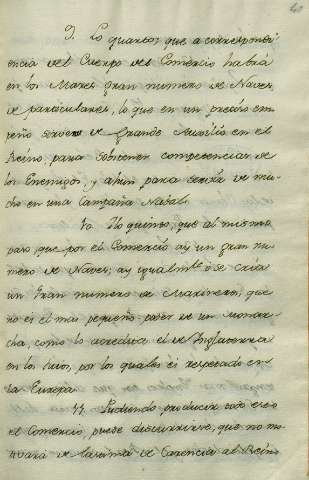 9. Lo quarto, que a correspon
dencia del Cuerpo del Comercio habrá
en los Mares gran numero de Naves
de particulares, lo que en un preciso em
peño servirá de grande Auxilio en el
Reino, para sostener competencias de
los Enemigos, y ahún para servir de mu
cho en una Campaña Nabal.
10. Lo quinto, que al mismo
paso, que por el Comercio ay un gran nu
mero de Naves; ay igualmte o se cria
un gran numero de Marineros, que
no es el mas pequeño poder de un Monar
cha, como lo acredita el de Inglaterra
en los suios, por los quales es respetado en
la Europa.
11. Pudiendo producir todo esto
el Comercio, puede discurrirse, que no mo
tivará de lastima de Carencia al Reino